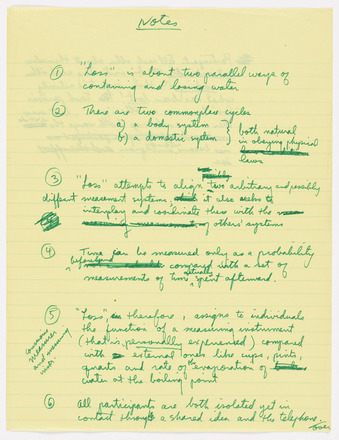 Notes
① "Loss" is about two parallel ways of
containing and losing water
② There are two commonplace cycles
a) a body system
b) a domestic system
both natural
in obeying physical
laws
③ "Loss" attempts to align two arbitrary and possibly
different measurement systems, it also seeks to
interplay and coordinate these with the
of others' systems
④ Time can be measured only as a probability
beforehand compared with a set of
measurements of time actually spent afterward.
⑤ "Loss", therefore, assigns to individuals
the function of a measuring instrument
(that is, personally experienced) compared
with external ones like cups, pints,
quarts and rate of the evaporation of
water at the boiling point
measurer
and measuring
⑥ All participants are both isolated yet in
contact through a shared idea and the telephone.
over